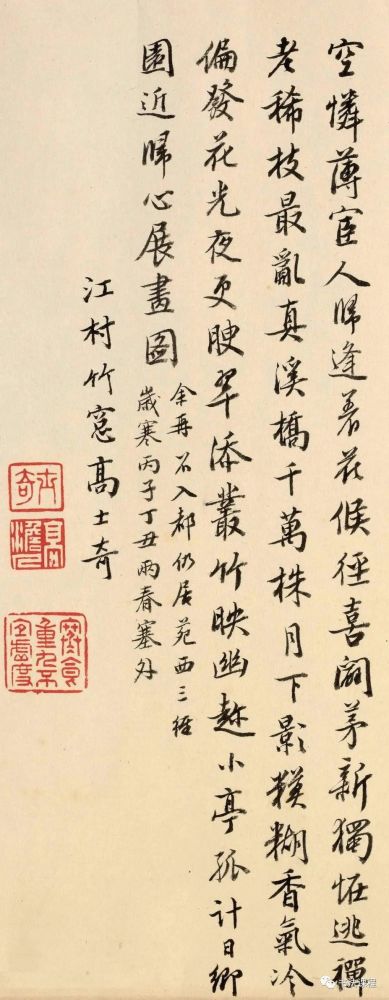 空憐薄宦人歸逢著花候徑喜闢茅新獨恠逃禪
老稀技最亂真溪橋千萬株月下影糢糊香氣冷
偏發花光夜更腴翠添叢竹映幽趂小亭孤計日鄉
園近歸心展畫圖
余再召入都仍居苑西三經
歲寒丙子丁丑兩春塞外
江村竹窓高士奇
士奇
高澹人